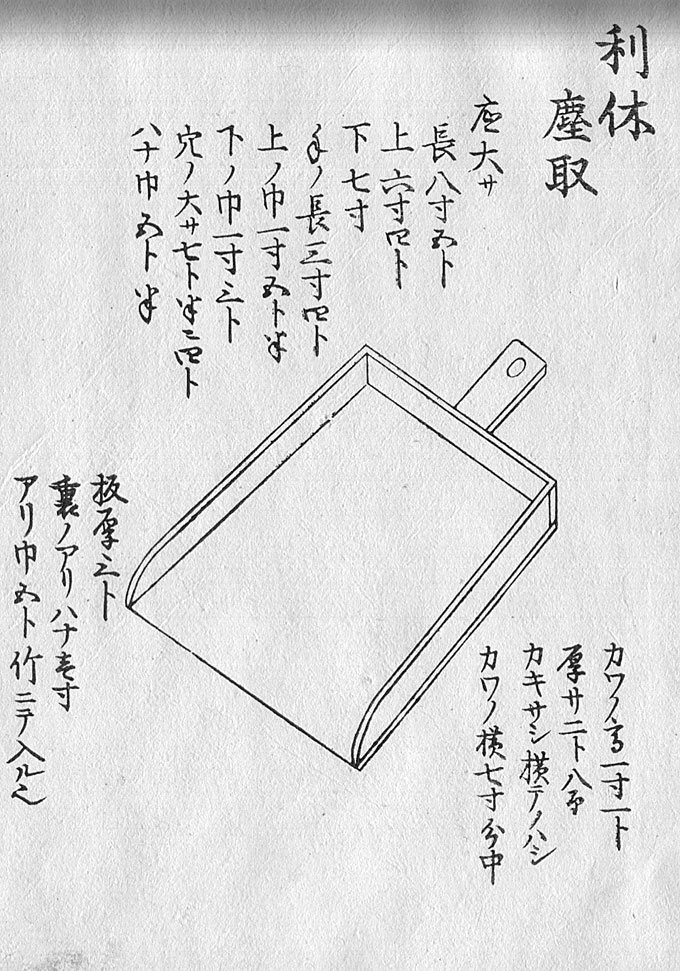 利休
塵取
底大サ
長八寸五ト
上六寸四ト
下七寸
手ノ長三寸四ト
上ノ巾一寸五ト半
下ノ巾一寸三ト
穴ノ大サ七ト半ニ四ト
ハナ巾五ト半
カワノ高一寸一ト
厚サ二ト八
カキサシ横テノハシ
カワノ横七寸分中
板厚三ト
裏ノアリハナ壱寸
アリ巾五ト竹ニテ入ル